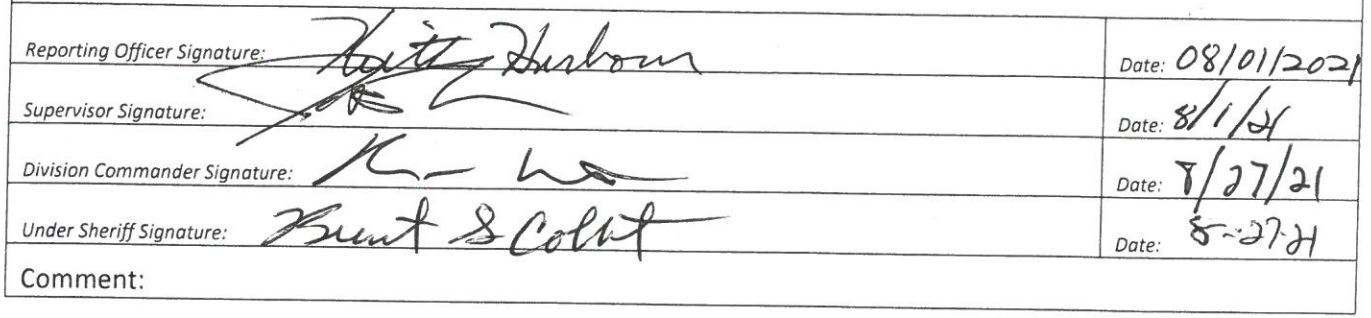 Reporting Officer Signature: Date: 08/01/2021
Supervisor Signature: Date: 8/1/21
Division Commander Signature: Date: 8/27/21
Under Sheriff Signature: Brent S Colbt Date: 8-27-21
Comment: